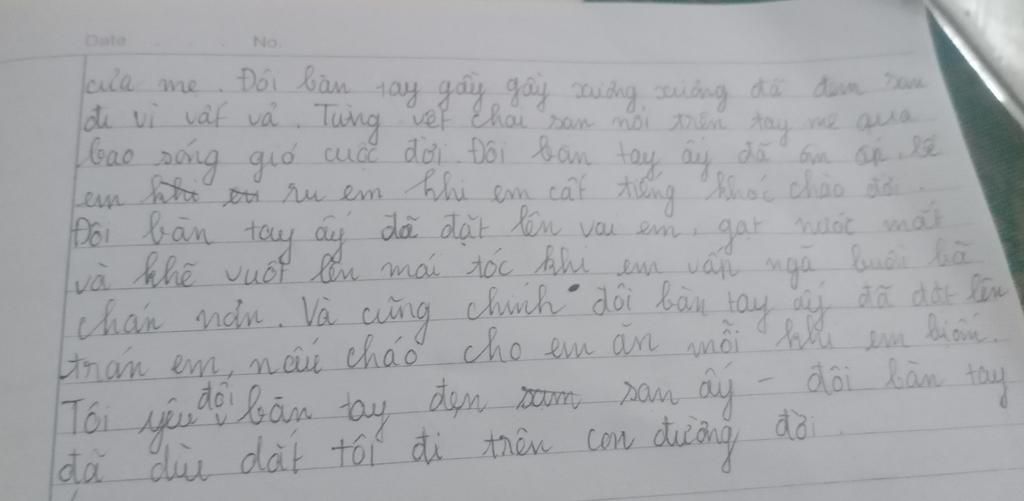 Date No.
của mẹ. Đôi bàn tay gầy gầy xương xương đã đen sạm
đi vì vất vả. Từng vết chai sạn nổi trên tay mẹ qua
bao sóng gió cuộc đời. Đôi bàn tay ấy đã ôm ấp,
em ru em khi em cất tiếng khóc chào đời.
Đôi bàn tay ấy đã đặt lên vai em, gạt nước mắt
và khẽ vuốt lên mái tóc khi em vấp ngã buồn bã
chán nản. Và cũng chính đôi bàn tay ấy đã đặt lên
trán em, nấu cháo cho em ăn mỗi khi em
Tôi yêu đôi bàn tay đen sạn ấy - đôi bàn tay
đã dìu dắt tôi đi trên con đường đời.